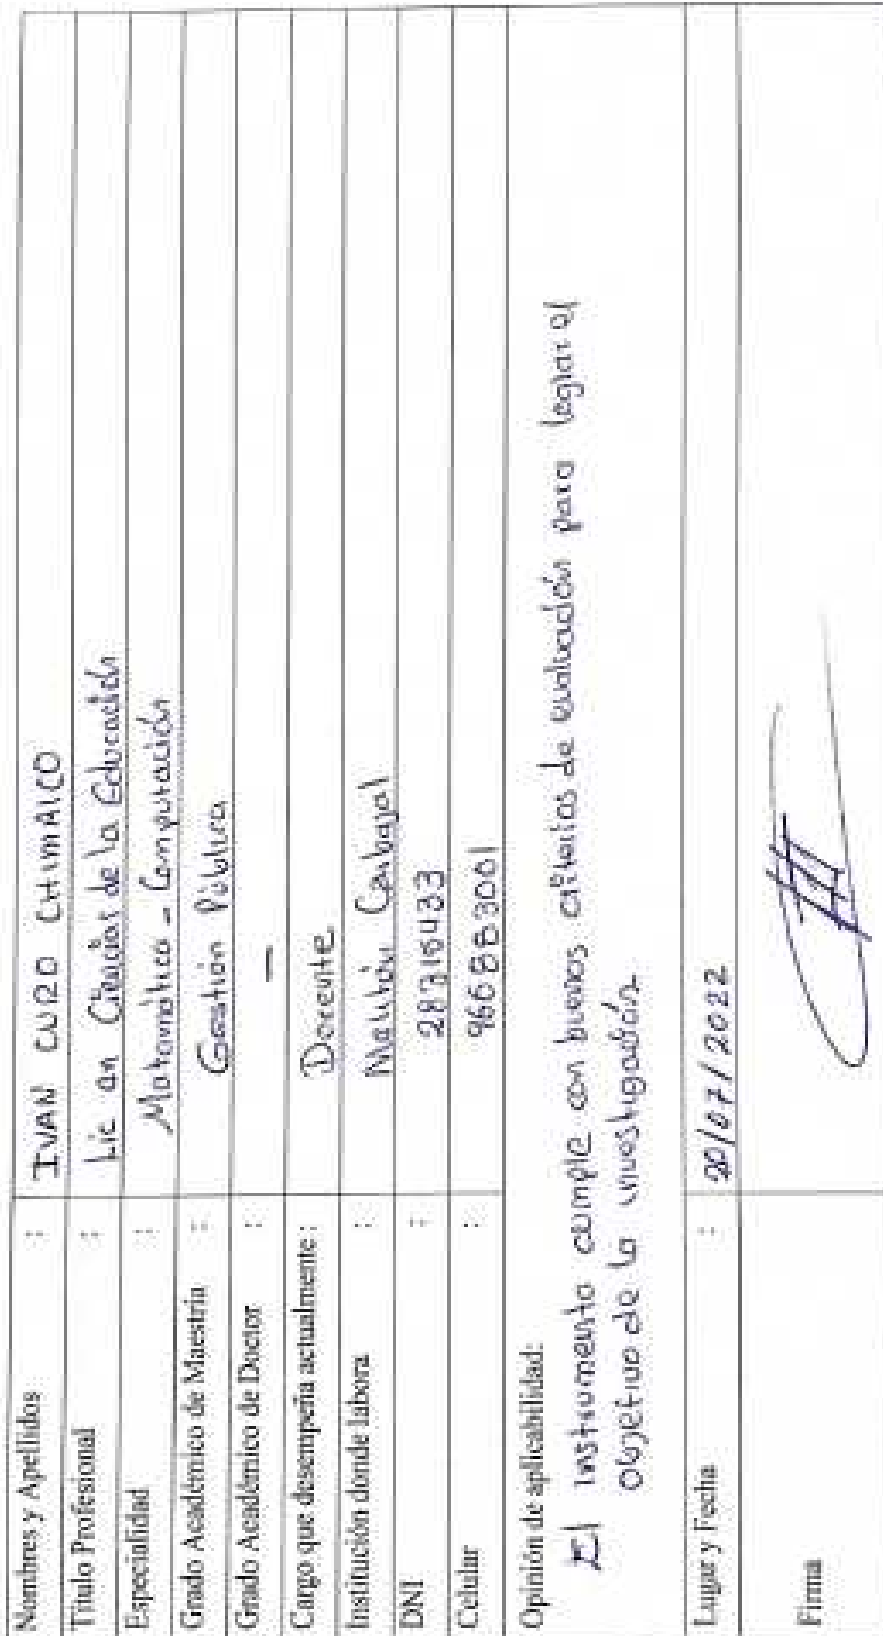 Nombres y Apellidos : IVAN CURO CHIMAICO
Título Profesional : Lic en Ciencias de la Educación
Especialidad : Matemática - Computación
Grado Académico de Maestria : Gestión Pública
Grado Académico de Doctor : -
Cargo que desempeña actualmente : Docente
Institución donde labora : Carbajal
DNI : 28316433
Celular :
Opinión de aplicabilidad:
El instrumento cumple con buenos criterios de evaluación para lograr el
objetivo de la investigación
Lugar y Fecha : 20/07/2022
Firma